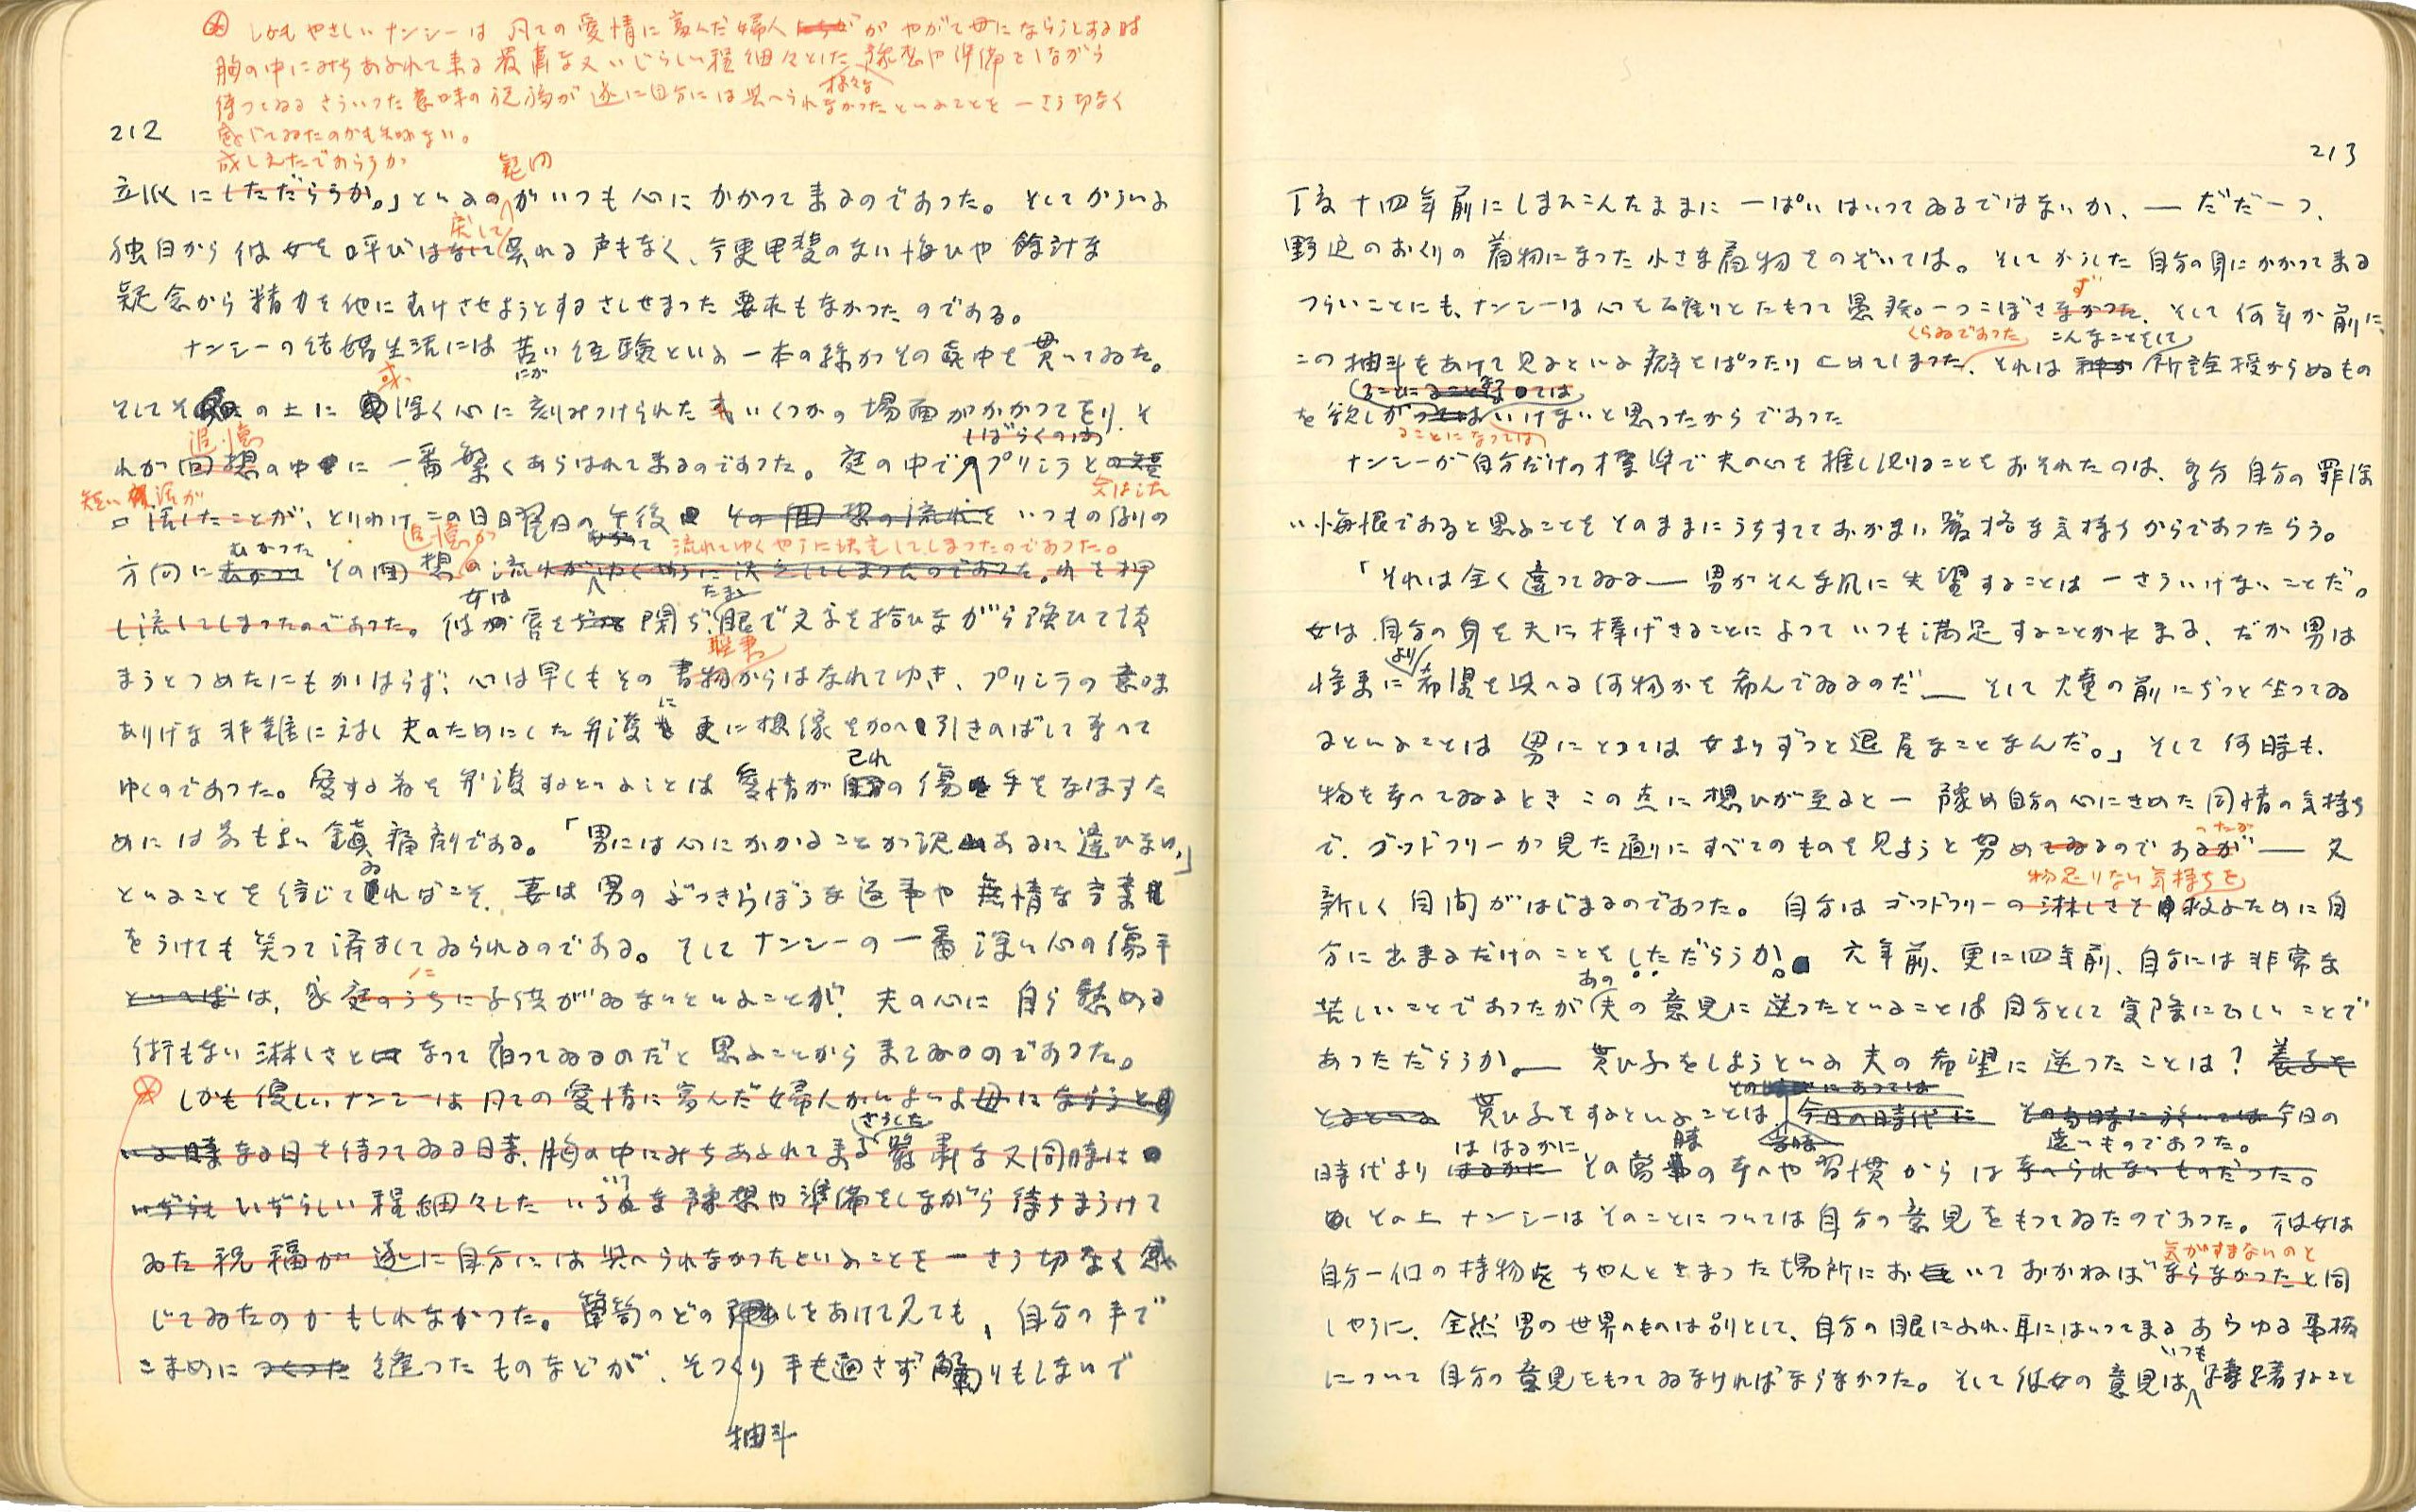 しかもやさしいナンシーは 凡ての愛情に富んだ婦人がやがて母にならうとする時
胸の中にみちあふれて来る 厳粛な又いじらしい程細々とした 様々な 豫想や準備をしながら
待つてゐる さういつた意味の祝福が遂に自分には与へられなかつたといふことを 一さう切なく
感じてゐたのかも知れない。
212
成しえたであらうか
疑問
立派にしただらうか。」といふのがいつも心にかかつて来るのであつた。そしてかういふ
戻して
独白から彼女を呼びはなして呉れる声もなく、今更甲斐のない悔ひや餘計な
疑念から精力を他にむけさせようとするさしせまつた要求もなかつたのである。
ナンシーの結婚生活には苦い経験といふ一本の線がその真中を貫いてゐた。
にが
そしてその上に 深く心に刻みつけられたいくつかの場面がかかつてをり、そ
しばらくの間
追憶
れが回想の中に一番繁くあらはれて来るのであつた。庭の中でプリシラと
交はした
短い 話が
話したことが、とりわけこの日曜日の午後 その回想の流れを いつもの例の
追憶が
流れてゆくやうに決定してしまつたのであつた。
方向にむかつて その回想の流れがゆくやうに決定してしまつたのであつた。れを押
し流してしまつたのであつた。彼女は唇を閉ぢ、眼で文字を拾ひながら強ひて読
聖書
まうとつめたにもかゝはらず、心は早くもその書物からはなれてゆき、プリシラの意味
ありげな非難に対し夫のためにした弁護に更に想像を加へ引きのばして考へて
ゆくのであつた。愛する者を弁護するといふことは愛情が己れの傷手をなほすた
めには最もよい鎮痛剤である。「男には心にかかることが沢山あるに違ひない」
といふことを信じてゐればこそ、妻は男のぶつきらぼうな返事や無情な言葉
をうけても笑つて済ましてゐられるのである。そしてナンシーの一番深い心の傷手
といへばは、家庭のうちに子供がゐないといふことが、夫の心に自ら慰める
術もない淋しさとなつて宿つてゐるのだと思ふことから来てゐるのであつた。
しかも優しいナンシーは凡ての愛情に富んだ婦人がいよいよ母にならうと
さうした
いふ時 なる日を待つてゐる日来、胸の中にみちあふれて来る厳粛な又同時に
いぢらしい程細々した いろいろな豫想や準備をしながら待ちまうけて
ゐた祝福が遂に自分には与へられなかつたといふことを一さう切なく感
じてゐたのかもしれなかつた。箪笥のどの しをあけて見ても、自分の手で
こまめに つくつた 縫つたものなどが、そつくり手も通さず觸りもしないで
抽斗
213
丁度十四年前にしまひこんたままに一ぱいはいつてゐるではないか、— だだ一つ、
野辺のおくりの着物になつた小さな着物をのぞいては。そしてかうした自分の身にかかつて来る
ず
つらいことにも、ナンシーは心を確りとたもつて愚痴一つこぼさなかつた、そして何年か前に、
くらゐであつた こんなことをして
この抽斗をあけて見るといふ癖をぱつたりとめてしまつた、それは所詮授からぬもの
を欲しがつてはいけないと思つたからであつた
ることになつては
ナンシーが自分だけの標準で夫の心を推し測ることをおそれたのは、多分自分の罪深
い悔恨であると思ふことをそのままにうちすてておかまい厳格な気持ちからであつたらう。
「それは全く違つてゐる— 男がそんな風に失望することは一さういけないことだ。
女は自分の身を夫に捧げきることによつていつも満足することが出来る、だが男は
より
将来に希望を与へる何物かを希んでゐるのだ— そして火竈の前にぢつと坐つてゐ
るといふことは男にとつては女よりずつと退屈なことなんだ。」そして何時も、
物を考へてゐるときこの点に想ひが至ると— 豫め自分の心にきめた同情の気持ち
つたが
で、ゴッドフリーが見た通りにすべてのものを見ようと努めてゐるのであるが— 又
物足りない気持ちを
新しく自問がはじまるのであつた。自分はゴッドフリーの淋しさを救ふために自
分に出来るだけのことをしただらうか。六年前、更に四年前、自分には非常な
あの
苦しいことであつたが夫の意見に逆つたといふことは自分として実際に正しいことで
あつただらうか。— 貰ひ子をしようといふ夫の希望に逆つたことは? 養子を
とるといふ 貰ひ子をするといふことは 今日の時代に 今日の
は はるかに 遠いものであつた。
時代より はるかに その当時の考へや習慣からは考へられないものだつた。
その上ナンシーはそのことについては自分の意見をもつてゐたのであつた。彼女は
気がすまないのと
自分一個の持物をちやんときまつた場所においておかねばならなかつたと同
じやうに、全然男の世界のものは別として、自分の眼にふれ、耳にはいつて来るあらゆる事柄
いつも
について自分の意見をもつてゐなければならなかつた。そして彼女の意見は躊躇すること